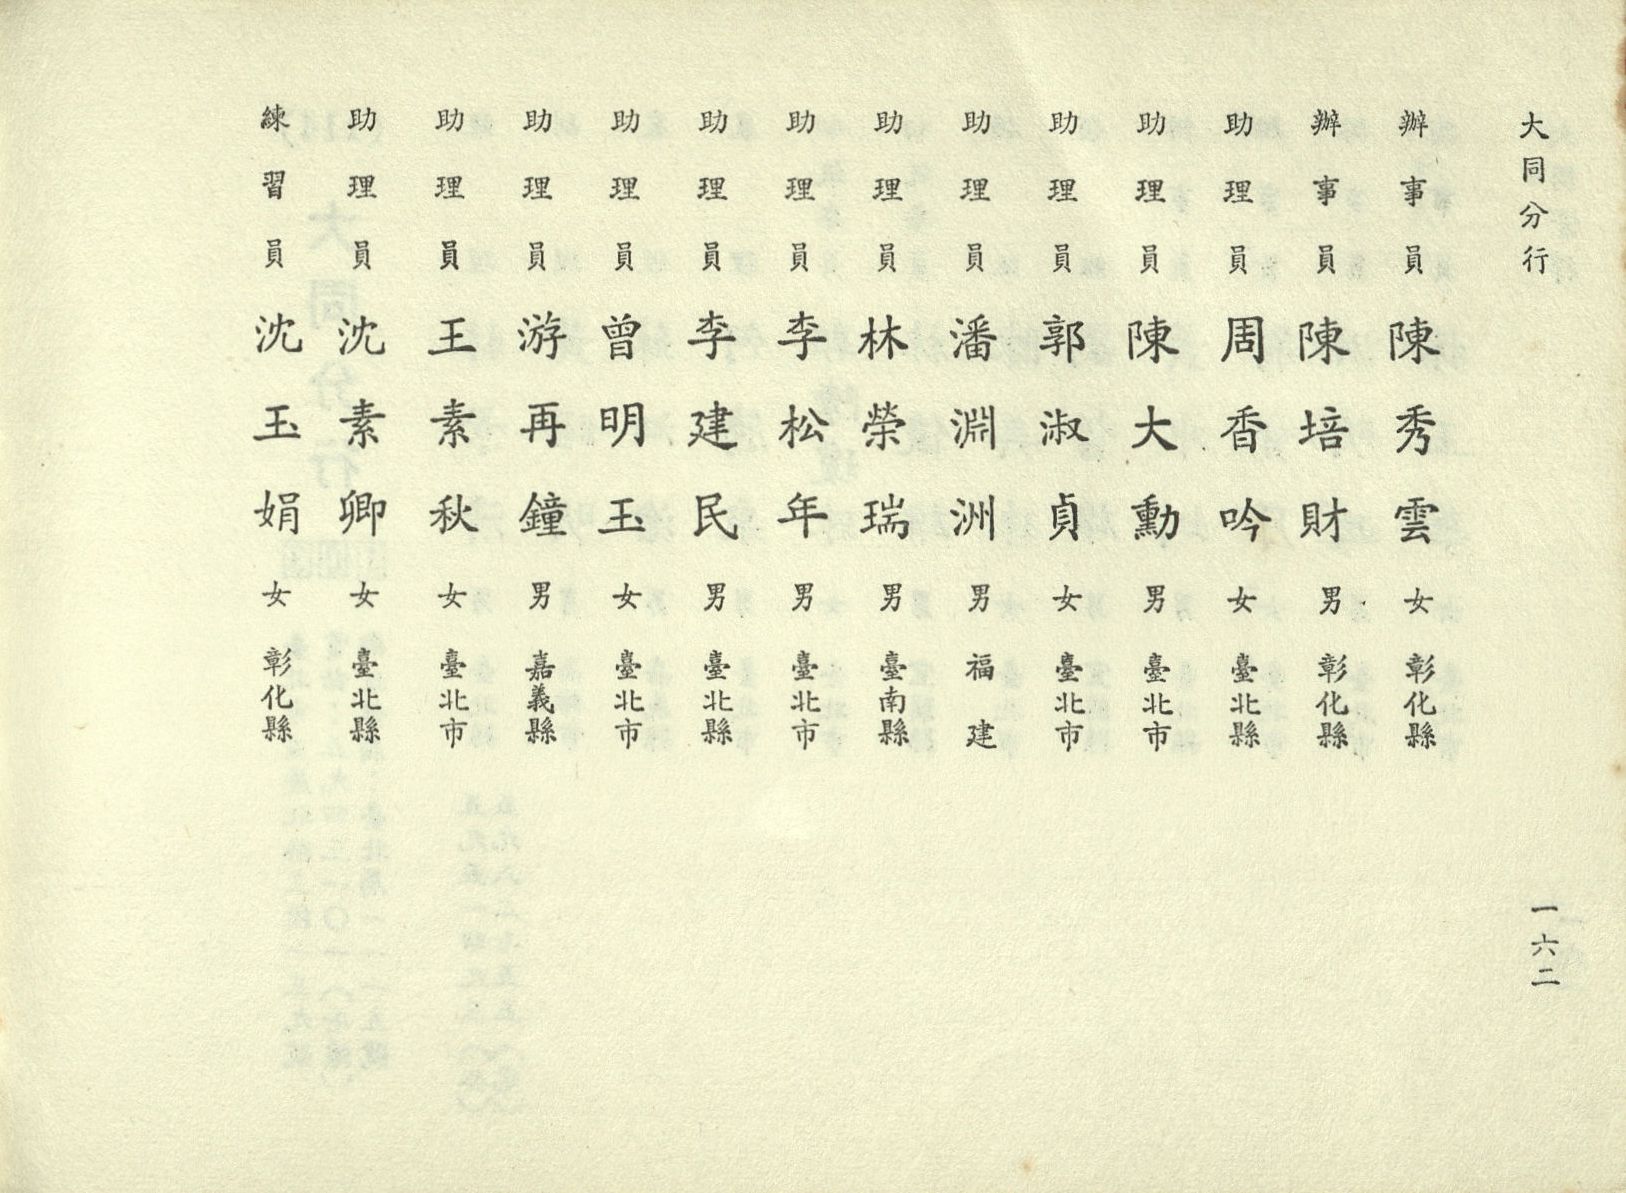 大同分行
辦事員 陳秀雲 女 彰化縣
辦事員 陳培財 男 彰化縣
助理員 周香吟 女 臺北縣
助理員 陳大勳 男 臺北市
助理員 郭淑貞 女 臺北市
助理員 潘淵洲 男 福建
助理員 林榮瑞 男 臺南縣
助理員 李松年 男 臺北市
助理員 李建民 男 臺北縣
助理員 曾明玉 女 臺北市
助理員 游再鐘 男 嘉義縣
助理員 王素秋 女 臺北市
助理員 沈素卿 女 臺北縣
練習員 沈玉娟 女 彰化縣
一六二